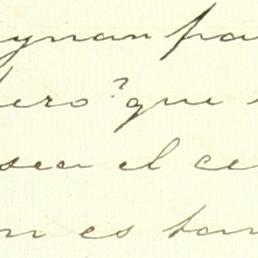 ynan pa
ero? que
sea el ce
n es tan